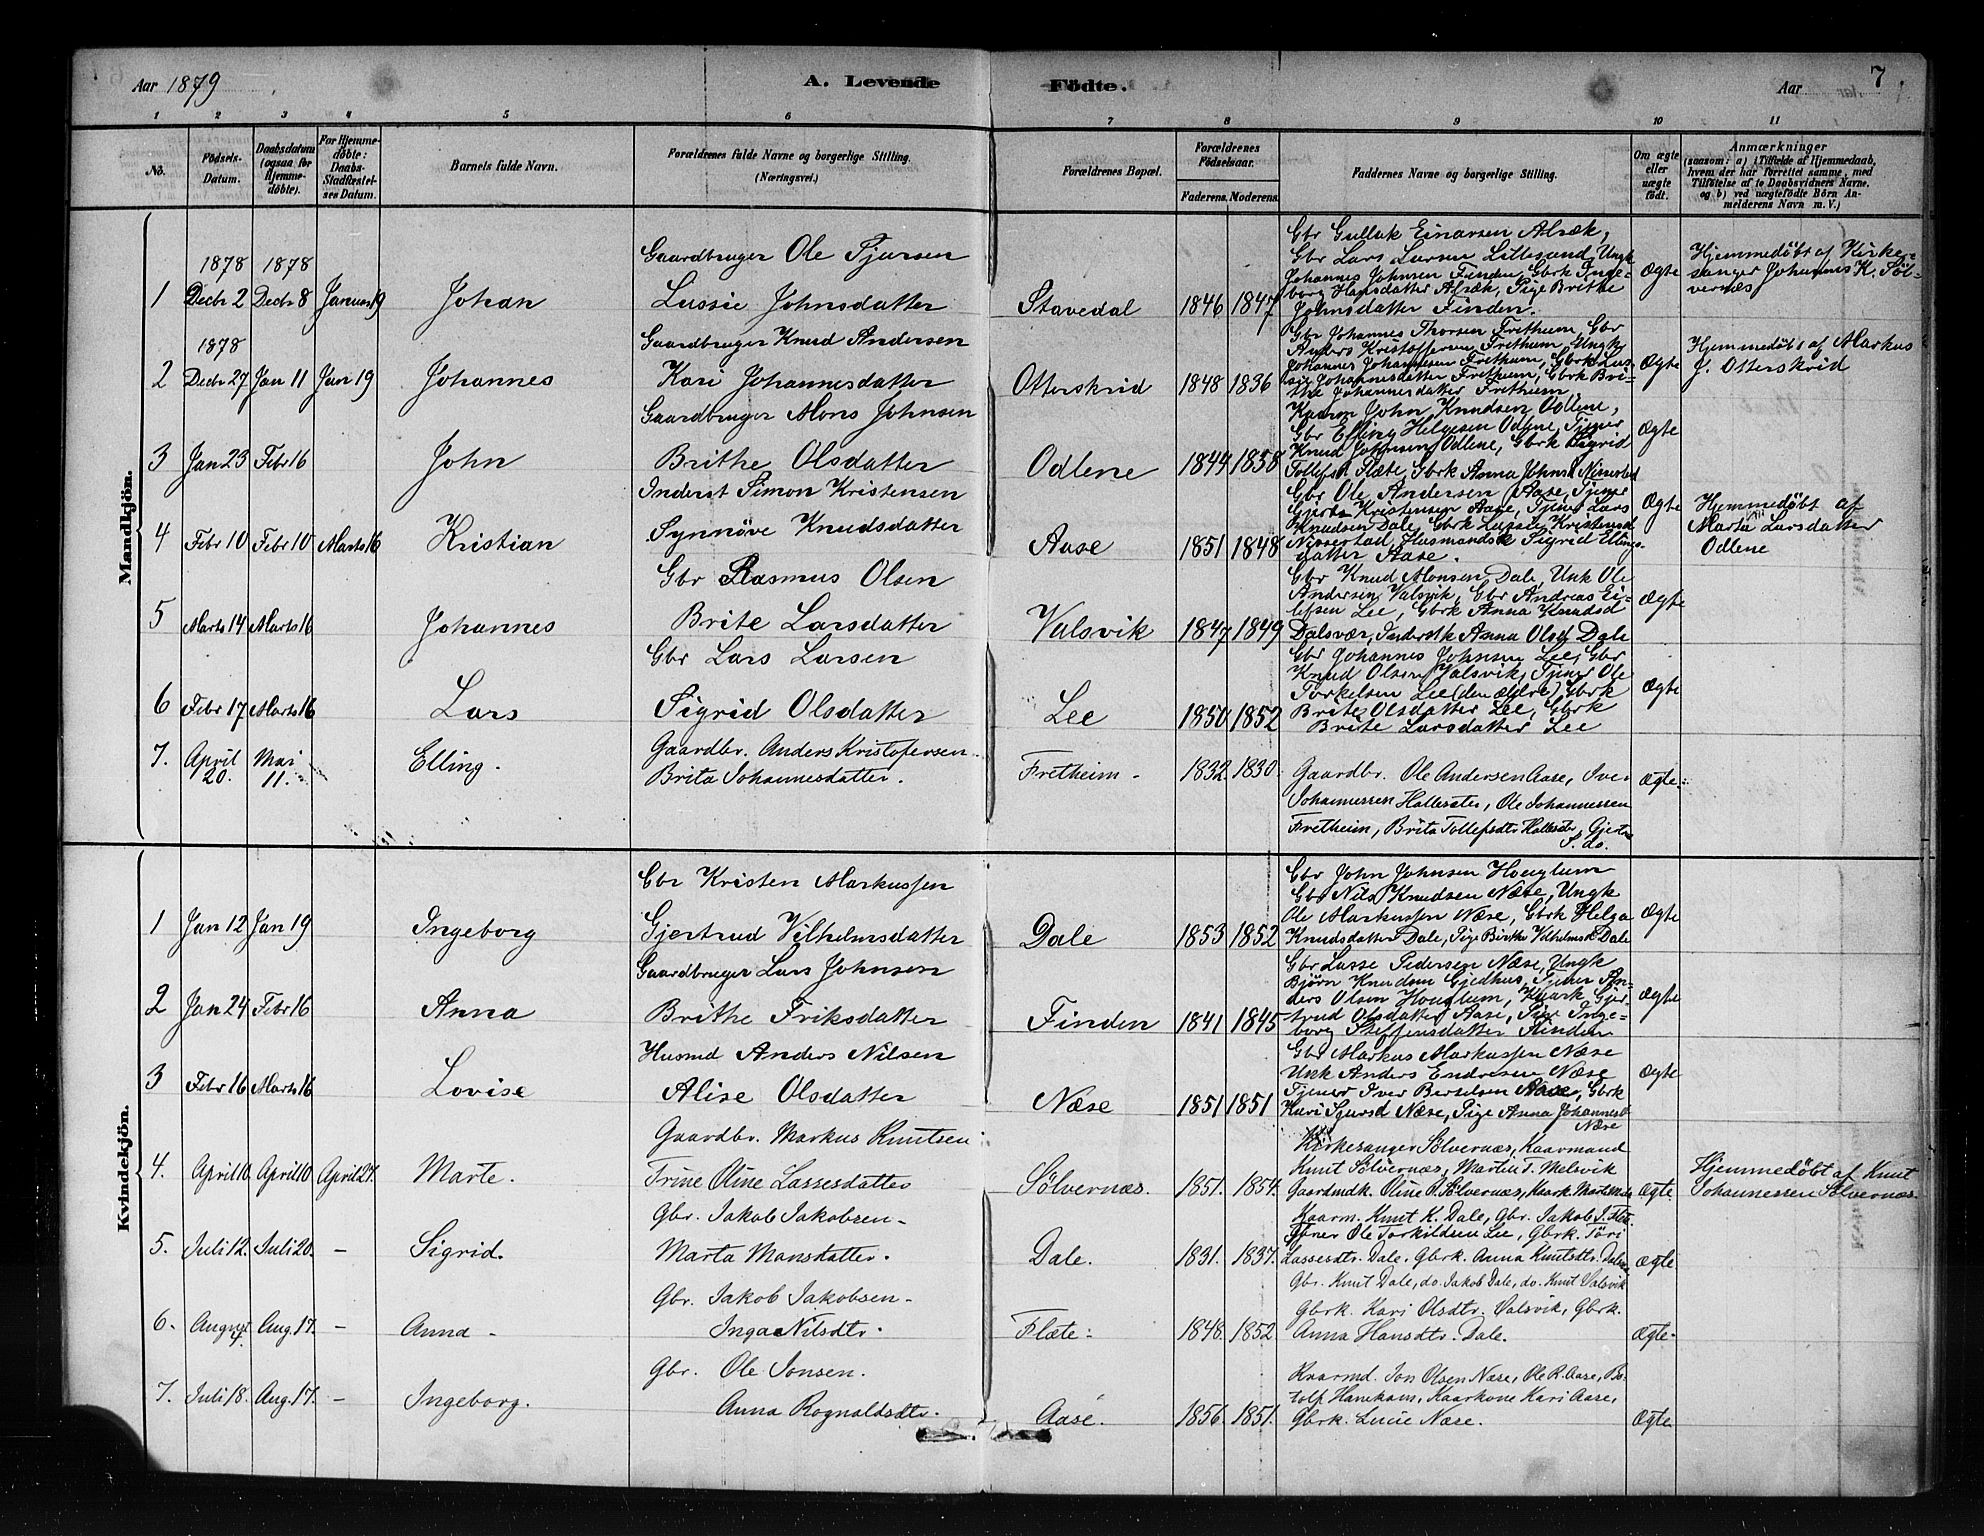 Aar 1879 A. Levende Fødte. Aar 7
1 2 3 4 5 6 7 8 9 10 11
No.
Fødsels-Datum.
Daabsdatum (ogsaa for Hjemmedøbte).
For Hjemmedøbte: Daabs-Stadfæstelses Datum.
Barnets fulde Navn.
Forældrenes fulde Navne og borgerlige Stilling. (Næringsvei.)
Forældrenes Bopæl.
Forældrenes Fødselsaar.
Faderens. Moderens.
Faddernes Navne og borgerlige Stilling.
Om ægte eller uægte født.
Anmærkninger
(saasom: a) i Tilfælde af Hjemmedaab,
hvem der har forrettet samme, med
Tilføielse af to Daabsvidners Navne,
og b) ved uægtefødte Børn Anmelderens Navn m. V.)
Mandkjön.
1 1878 Decbr 2 1878 Decbr 8 Januar 19 Johan
Gaardbruger Ole Sjursen
Lussie Johnsdatter
Stavedal 1846 1847
Gbr Gullak Einarsen Alræk,
Gbr Lars Larsen Lillesand, Ungk
Johannes Johnsen Finden, Gbrk Ingeborg Hansdatter Alræk, Pige Brithe
Johnsdatter Finden.
Ægte
Hjemmedøbt af Kirkesanger Johannes K. Sølvernæs
2 1878 Decbr 27 Jan 11 Jan 19 Johannes
Gaardbruger Knud Andersen
Kari Johannesdatter
Otterskrid 1848 1836
Gbr Johannes Thorsen Fretheim, Gbr
Anders Kristoffersen Fretheim, Ungk
Johannes Johannesen Fretheim, Gbrk Lussie Johannesdatter Fretheim, Gbrk Brithe Johannesdatter Fretheim
Ægte
Hjemmedøbt af Markus
J. Otterskrid
3 Jan 23 Febr 16 John
Gaardbruger Mons Johnsen
Brithe Olsdatter
Odlene 1844 1858
Kaarm John Knudsen Odlene,
Gbr Elling Helgesen Odlene, Tjener
Knud Johnsen Odlene, Gbrk Sigrid
Tollefsd Flæte, Gbrk Anna Johnsd Nissestad
Ægte
4 Febr 10 Febr 10 Marts 16 Kristian
Inderst Simon Kristensen
Synnöve Knudsdatter
Aase 1851 1848
Gbr Ole Andersen Aase, Tjener
Gjerts Kristensen Aase, Tjener Lars
Knudsen Dale, Gbrk Lussie Kristensd
Nissestad, Husmandsk Sigrid Ellingsdatter Aase.
Ægte
Hjemmedøbt af
Marta Larsdatter
Odlene
5 Marts 14 Marts 16 Johannes
Gbr Rasmus Olsen
Brite Larsdatter
Valsvik 1847 1849
Gbr Knud Monsen Dale, Unk Ole
Andersen Valsvik, Gbr Andreas Eilefsen Lee, Gbrk Anna Knudsd
Dalsvær, Inderstk Anna Olsd Dale
Ægte
6 Febr 17 Marts 16 Lars
Gbr Lars Larsen
Sigrid Olsdatter
Lee 1850 1852
Gbr Johannes Johnsen Lee, Gbr
Knud Olsen Valsvik, Tjener Ole
Torkelsen Lee (den ældre), Gbrk
Brite Olsdatter Lee, Gbrk
Brite Larsdatter Lee
Ægte
7. April 20. Mai 11. Elling.
Gaardbr. Anders Kristofersen
Brita Johannesdatter.
Fretheim. 1832 1830.
Gaardbr. Ole Andersen Aase, Iver
Johannessen Hallersete, Ole Johannessen
Fretheim, Brita Tollefsdtr Hallerste, Gjertru
S. do.
Ægte.
Kvindekjön.
1 Jan 12 Jan 19 Ingeborg
Gbr Kristen Markussen
Gjertrud Vilhelmsdatter
Dale 1853 1852
Gbr John Johnsen Houglum
Gbr Nils Knudsen Næse, Ungk
Ole Markussen Næse, Gbrk Helga
Knudsdatter Dale, Pige Birthe Vilhelmsd Dale
Ægte
2 Jan 24 Febr 16 Anna
Gaardbruger Lars Johnsen
Brithe Eriksdatter
Finden 1841 1845
Gbr Lasse Pedersen Næse, Ungk
Bjørn Knudsen Gjedhus, Tjener Anders Olsen Houglum, Kaark Gjertrud Olsdatter Aase, Pige Ingeborg Steffensdatter Finden
Ægte
3 Febr 16 Marts 16 Lovise
Husmd Anders Nilsen
Alise Olsdatter
Næse 1851 1851
Gbr Markus Markussen Næse
Unk Anders Endresen Næse
Tjener Iver Bertelsen Aase, Gbrk
Kari Sjursd Næse, Pige Anna Johannesd
Næse
Ægte
4. April 10. April 10 April 27. Marte.
Gaardbr. Markus Knutsen
Trine Oline Lassesdatter
Sølvernæs. 1851. 1854.
Kirkesanger Sølvernæs, Kaarmand
Knut Sølvernæs, Martin T. Melsvik
Gaardmdk. Oline O. Sølvernæs, Kaark. Marte
Ægte.
Hjemmedøbt af Knut
Johannessen Sølvernæs.
5. Juli 12. Juli 20. — Sigrid.
Gbr. Jakob Jakobsen.
Marta Monsdatter.
Dale. 1831. 1837.
Kaarm. Knut K. Dale, Gbr. Jakob J. Flete
Tjener Ole Torkildsen Lee, Gbrk. Töri
Lassesdtr. Dale, Gbrk. Anna Knutsdtr. Dale
Ægte.
6. August 4. Aug. 17. — Anna.
Gbr. Jakob Jakobsen.
Inga Nilsdtr.
Flæte. 1848. 1852
Gbr. Knut Dale, do. Jakob Dale, do. Knut Valsvik
Gbrk. Kari Olsdtr. Valsvik, Gbrk.
Anna Hansdtr. Dale.
Ægte.
7. Juli 18. Aug. 17. — Ingeborg.
Gbr. Ole Jonsen.
Anna Rognaldsdtr.
Aase. 1856. 1851.
Kaarmd. Jon Olsen Næse, Ole R. Aase, Botolf Hamekam, Kaarkone Kari Aase,
Gbrk. Lucie Næse.
Ægte.